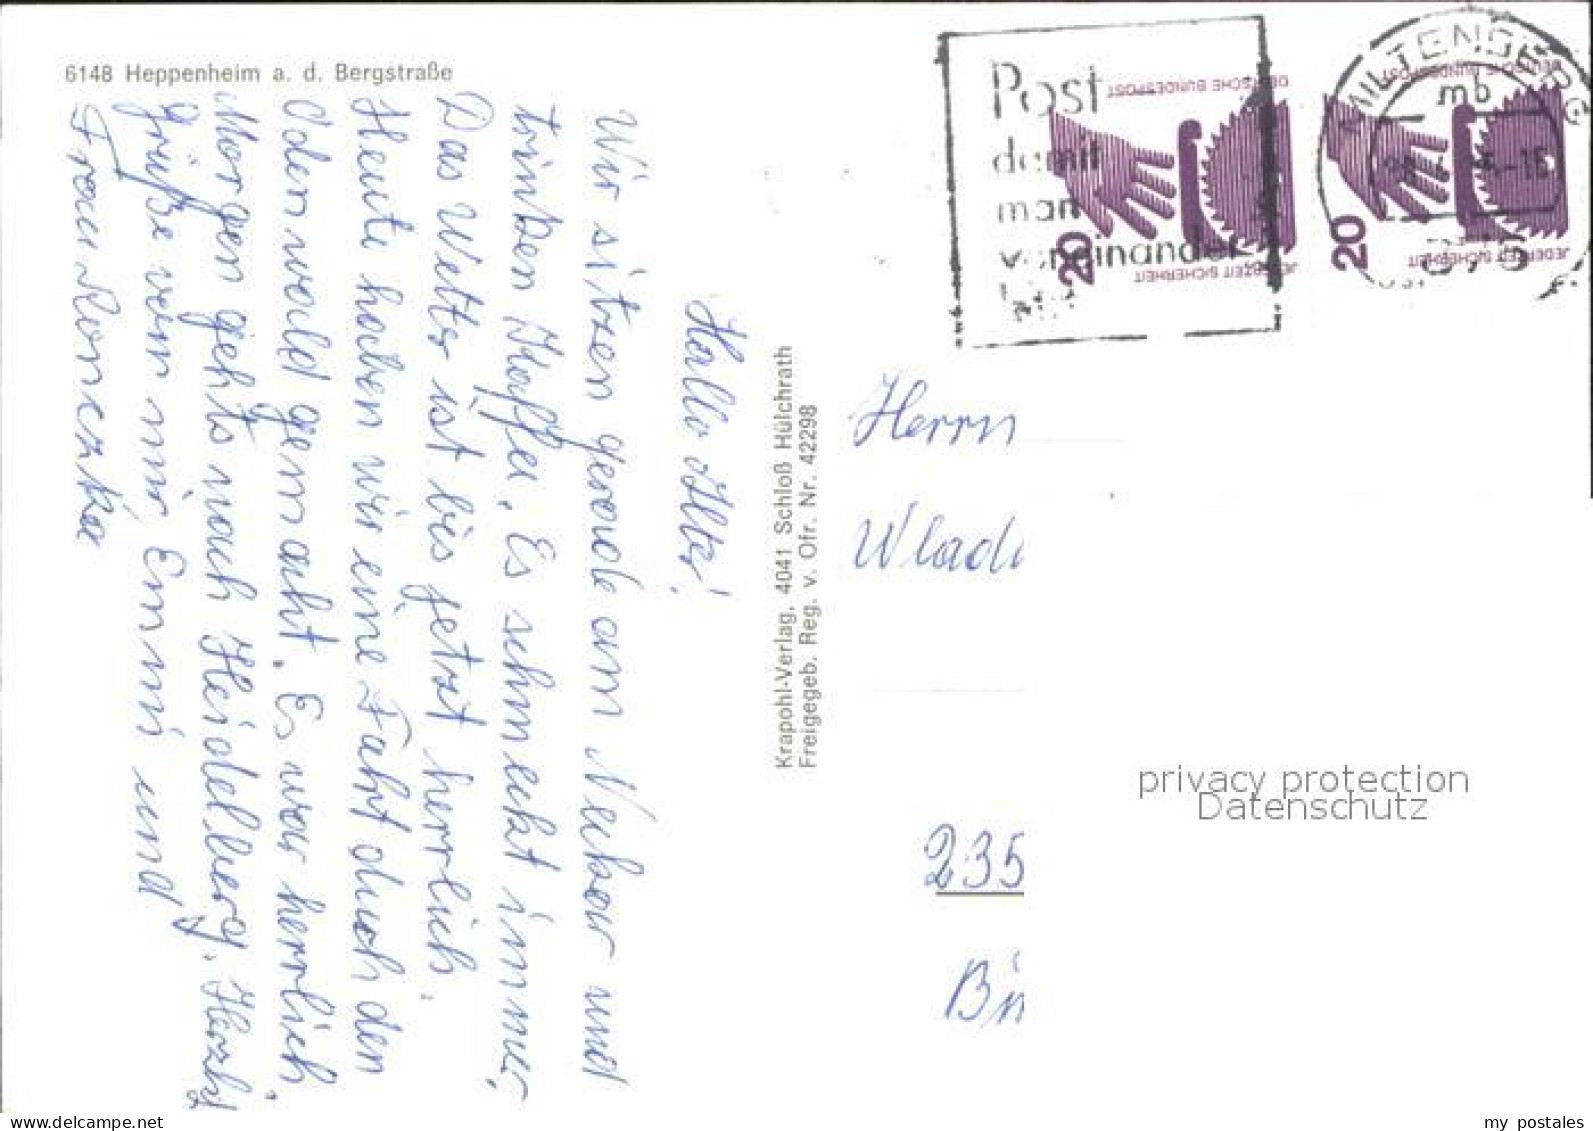 6148 Heppenheim a. d. Bergstraße
Hallo Alter!
Wir sitzen gerade am Neckar und
trinken Kaffee. Es schmeckt immer,
Das Wetter ist bis jetzt herrlich.
Heute haben wir eine Fahrt durch den
Odenwald gemacht. Es war herrlich.
Morgen gehts nach Heidelberg. Herzl.
Grüße von mir, Emmi und
Frau
Krapohl-Verlag, 4041 Schloß Hülchrath
Freigegeb. Reg. v. Ofr. Nr. 42298
Post
damit
man
voneinander
DEUTSCHE BUNDESPOST
JEDERZEIT SICHERHEIT
20
DEUTSCHE BUNDESPOST
JEDERZEIT SICHERHEIT
20
MILTENBERG
mb
Herrn
Wladi
235
privacy protection
Datenschutz
www.delcampe.net
my postales